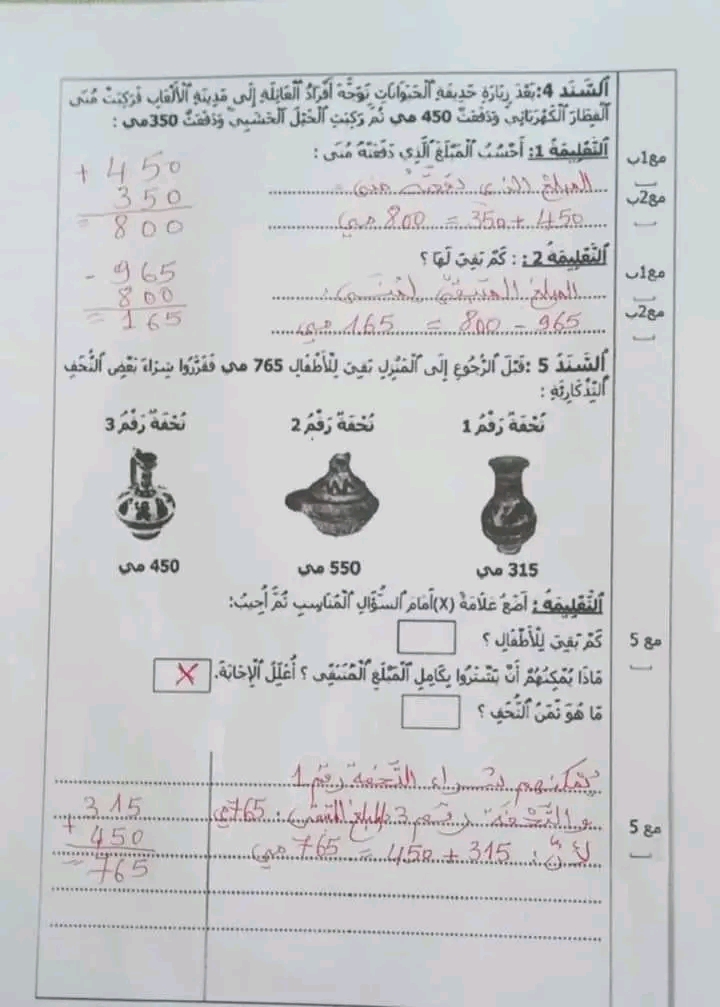 السَّنَد 4: بَعْدَ زِيَارَةِ حَدِيقَةِ الْحَيَوَانَاتِ تَوَجَّهَ أَفْرَادُ الْعَائِلَةِ إِلَى مَدِينَةِ الْأَلْعَابِ فَرَكِبَتْ مُنَى
الْقِطَارَ الْكَهْرَبَائِيَّ وَدَفَعَتْ 450 مي ثُمَّ رَكِبَتِ الْخَيْلَ الْخَشَبِيَّ وَدَفَعَتْ 350 مي :
التَّعْلِيمَةُ 1: أَحْسُبُ الْمَبْلَغَ الَّذِي دَفَعَتْهُ مُنَى :
مع1ب
المبلغ الذي دفعته منى :
مع2ب
450 + 350 = 800 مي
+ 450
350
= 800
التَّعْلِيمَةُ 2 : : كَمْ بَقِيَ لَهَا ؟
مع1ب
المبلغ المتبقي لمنى :
مع2ب
965 - 800 = 165 مي
- 965
800
= 165
السَّنَدُ 5 : قَبْلَ الرُّجُوعِ إِلَى الْمَنْزِلِ بَقِيَ لِلْأَطْفَالِ 765 مي فَقَرَّرُوا شِرَاءَ بَعْضِ التُّحَفِ
التِّذْكَارِيَّةِ :
تُحْفَةٌ رَقْمُ 1 تُحْفَةٌ رَقْمُ 2 تُحْفَةٌ رَقْمُ 3
315 مي 550 مي 450 مي
التَّعْلِيمَةُ : أَضَعُ عَلَامَةَ (X) أَمَامَ السُّؤَالِ الْمُنَاسِبِ ثُمَّ أُجِيبُ:
كَمْ بَقِيَ لِلْأَطْفَالِ ؟
مع 5
مَاذَا يُمْكِنُهُمْ أَنْ يَشْتَرُوا بِكَامِلِ الْمَبْلَغِ الْمُتَبَقَّى ؟ أُعَلِّلُ الْإِجَابَةَ. X
مَا هُوَ ثَمَنُ التُّحَفِ ؟
يمكنهم شراء التحفة رقم 1
و التحفة رقم 3 المبلغ المتبقى : 765 مي
مع 5
لأنّ : 315 + 450 = 765 مي
315
+ 450
= 765